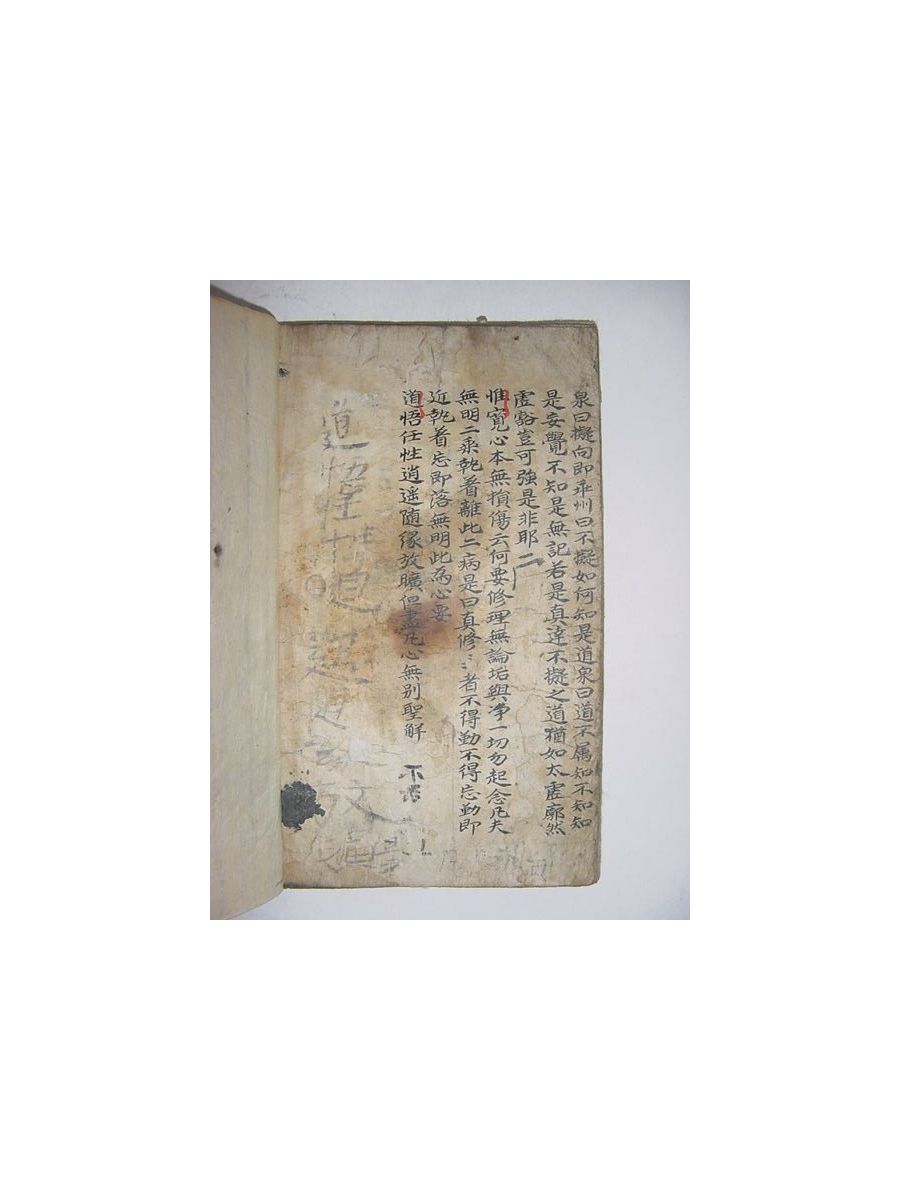 泉曰擬向即乖州曰不擬如何知是道泉曰道不属知不知知
是妄覺不知是無記若是真達不擬之道猶如太虛廓然
虛豁豈可強是非耶 二
惟寬心本無損傷云何要修理無論垢與净一切勿起念凡夫
無明二乘執着離此二病是曰真修〻者不得勤不得忘勤即
近執着忘即落無明此為心要
道悟任性逍遥随緣放曠但盡凡心無别聖解 不
道悟性